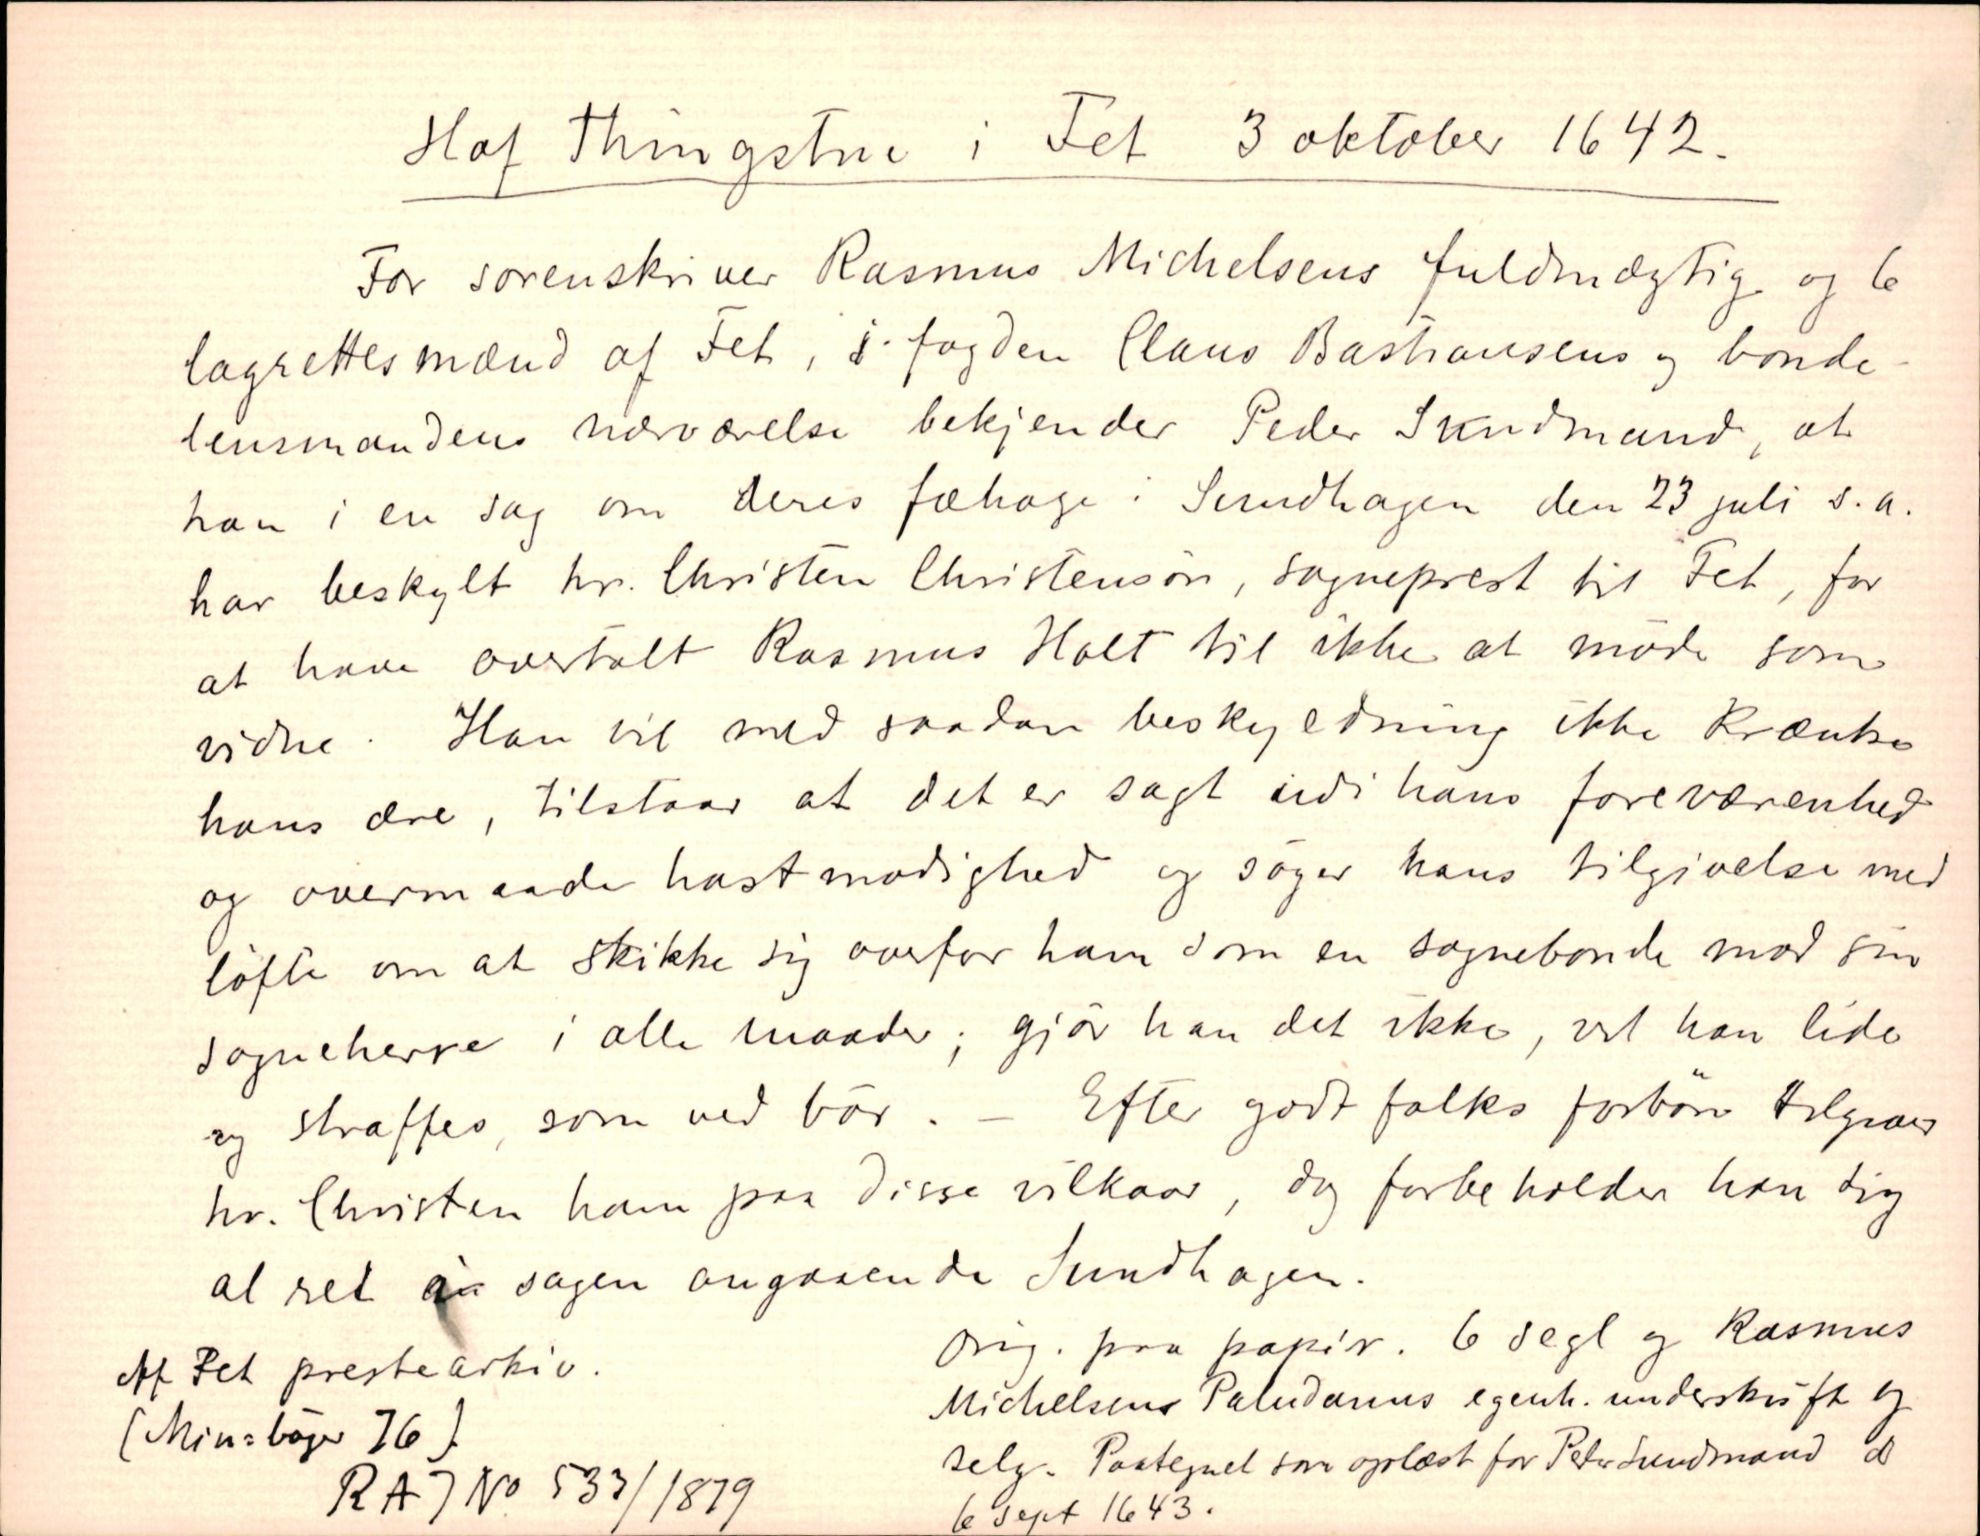 Hof Thingstue i Fet 3 oktober 1642.
For sorenskriver Rasmus Michelsens fuldmægtig og 6
lagrettesmænd af Fet, i fogden Claus Bastiansens og bonde-
lensmandens nærværelse bekjender Peder Sundmand, at
han i en sag om deres fæhage i Sundhagen den 23 juli s. a.
har beskylt hr. Christen Christensön, sogneprest til Fet, for
at have overtalt Rasmus Holt til ikke at möde som
vidne. Han vil med saadan beskyldning ikke krænke
hans ære, tilstaar at det er sagt udi hans foreværenhed
og overmaade hastmodighed og söger hans tilgivelse med
löfte om at skikke sig overfor ham som en sognebonde mod sin
sogneherre i alle maader; gjör han det ikke, vil han lide
og straffes, som ved bör. – Efter godt folks forbön tilgiver
hr. Christen ham paa disse vilkaar, dog forbeholder han sig
al ret i sagen angaaende Sundhagen.
Orig. paa papir. 6 segl og Rasmus
Michelsens Paludanus egenh. underskrift og
selg. Paategnet som oplæst for Peder Sundmand d
6 sept 1643.
Af Fet prestearkiv.
(Min: böger 76)
RA J No 533/1879